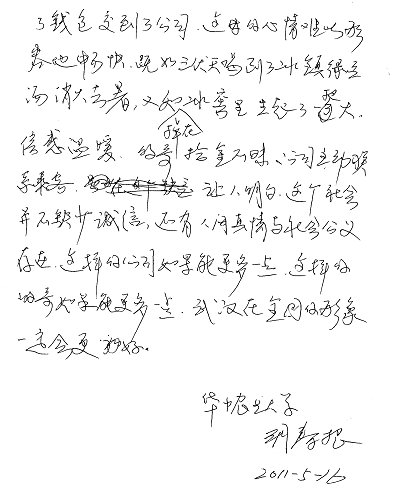 了钱包交到了公司。这时的心情难以形
容，既如三伏天喝到了冰镇绿豆
汤消去暑，又如冰窖里生起了一大
倍感温暖。的哥拾金不昧，公司主动联
系乘客，让人明白，这个社会
并不缺少诚信，还有人间真情与社会公义
存在。这样的公司如果能更多一点，这样的
的哥如果能更多一点，武汉在全国的形象
一定会更美好。
华中农业大学
2011-5-16